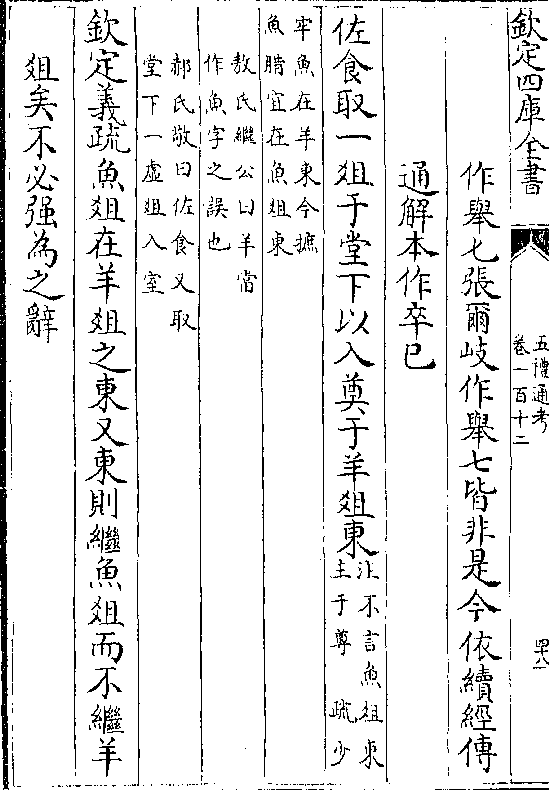 欽定四庫全書
五禮通考
卷一百十二
四十八
作舉七張爾岐作舉七皆非是今依續經傳
通解本作卒已
佐食取一俎于堂下以入奠于羊俎東
注不言魚俎東
主于尊 疏少
牢魚在羊東今摭
魚腊宜在魚俎東
敖氏繼公曰羊當
作魚字之誤也
郝氏敬曰佐食又取
堂下一虛俎入室
欽定義疏魚俎在羊俎之東又東則繼魚俎而不繼羊
俎矣不必强為之辭